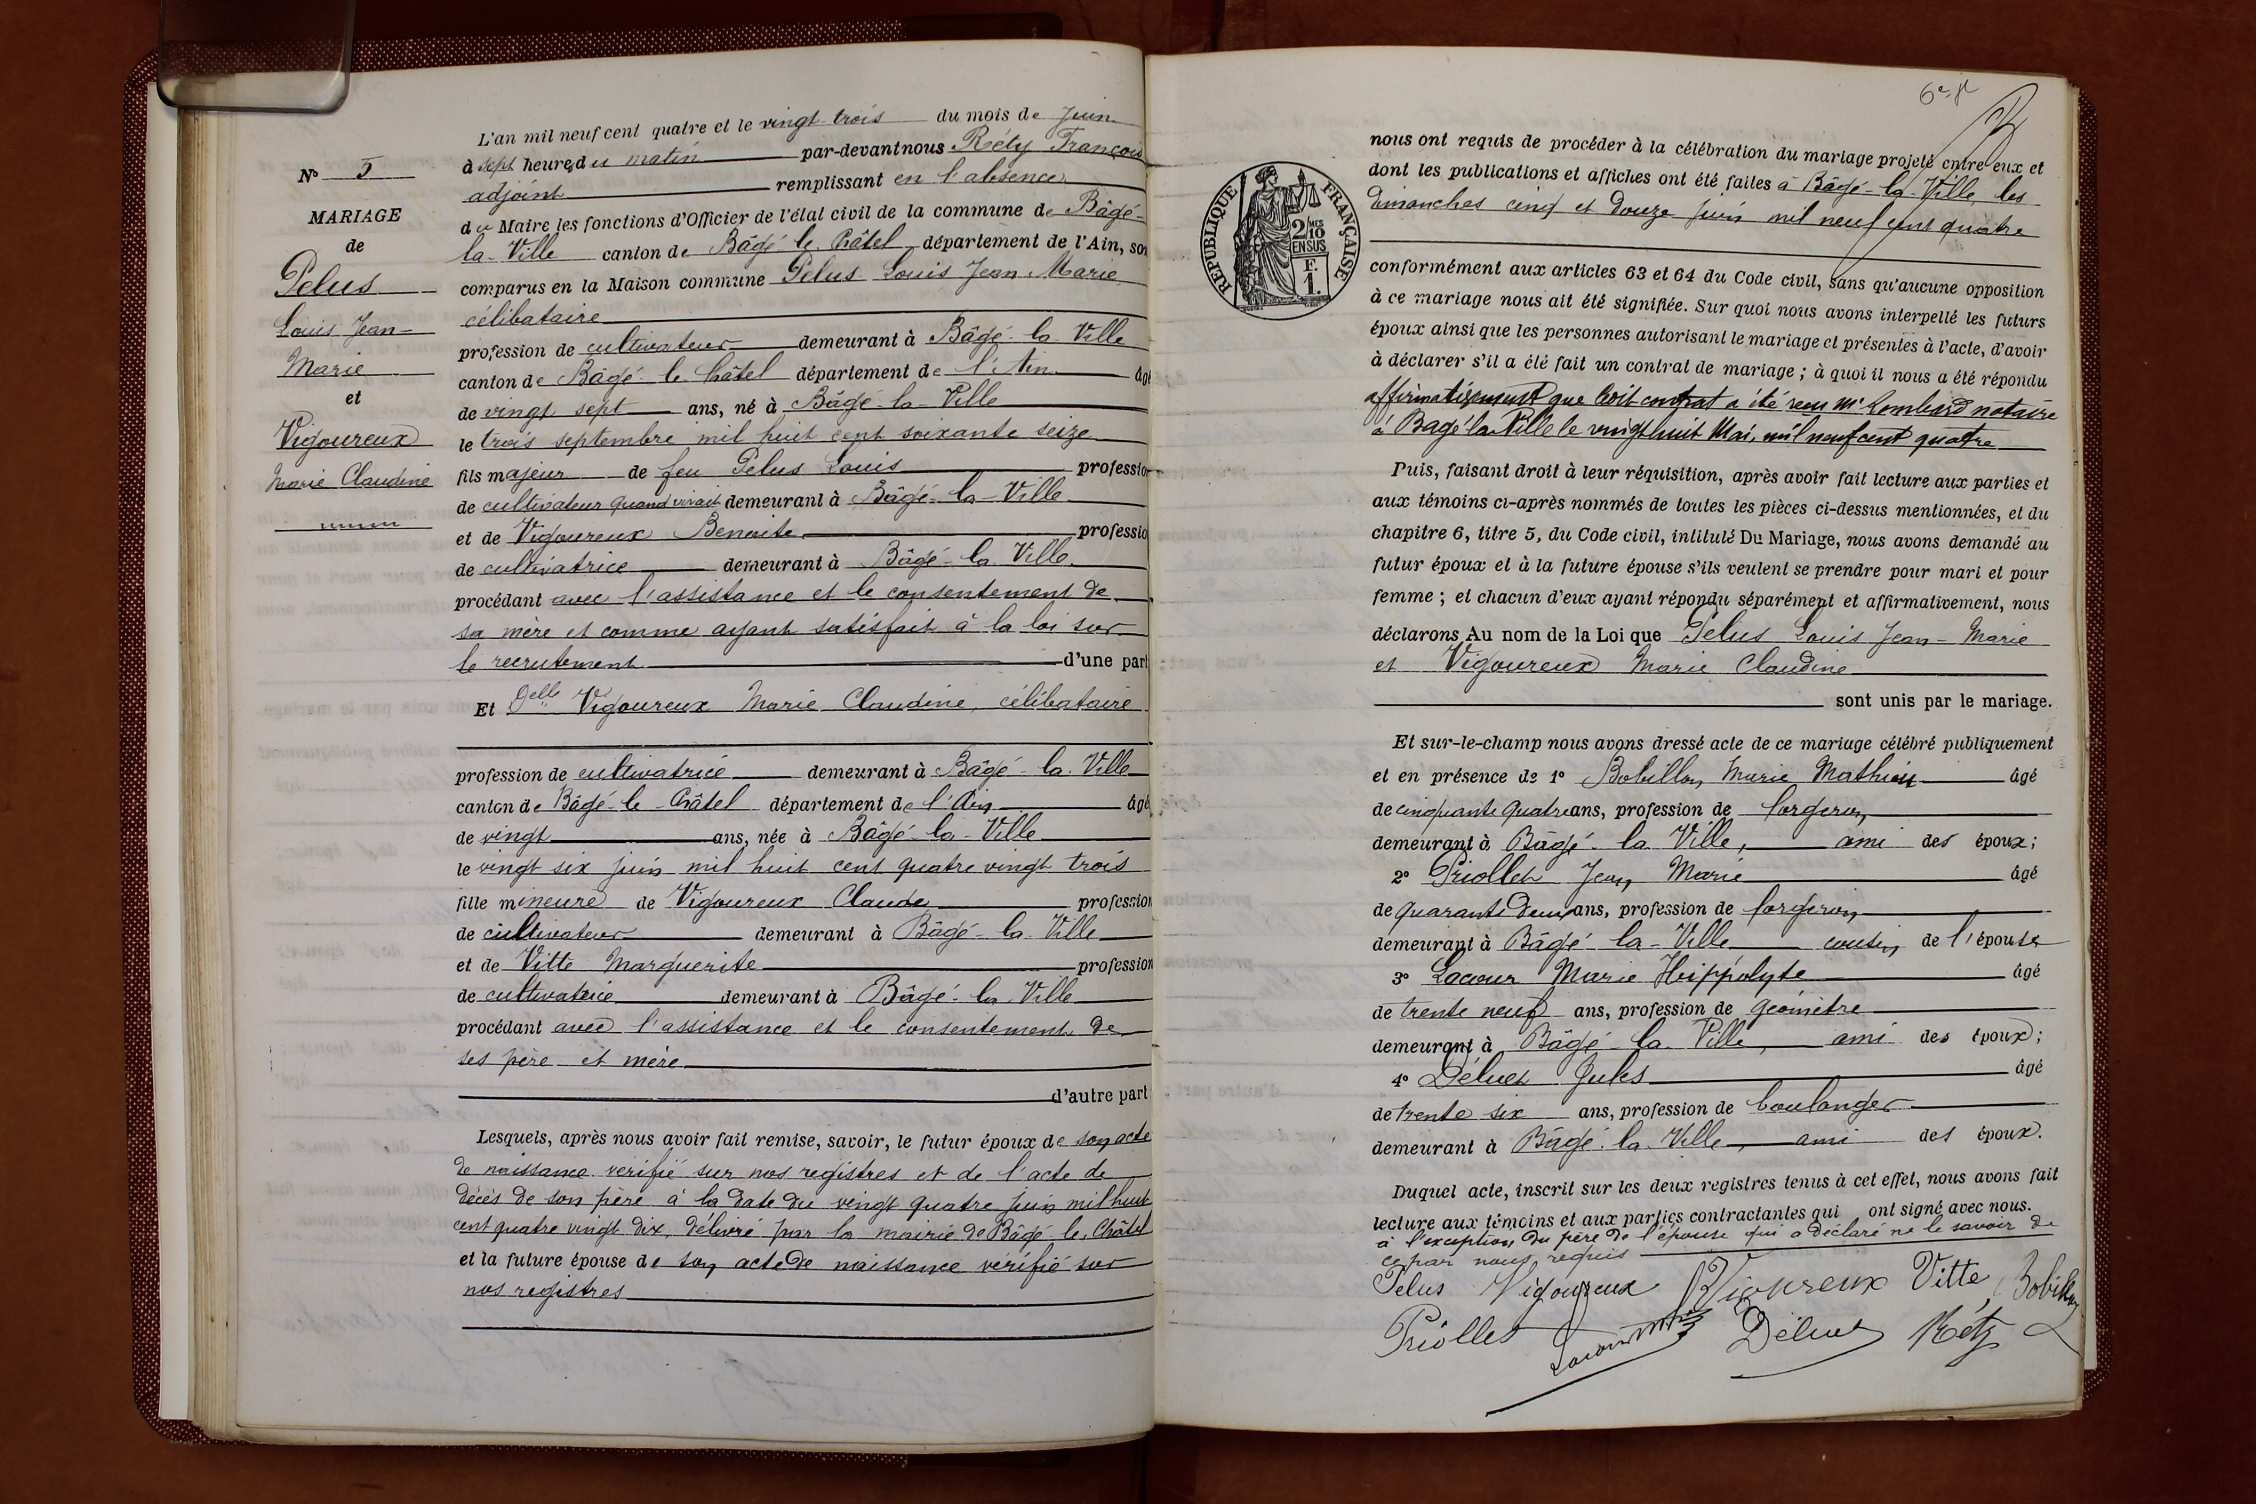 N° 5
MARIAGE
de
Pelus
Louis Jean-
Marie
et
Vigoureux
Marie Claudine
L'an mil neuf cent quatre et le vingt trois du mois de Juin
à sept heures du matin par-devant nous Réty François
adjoint remplissant en l'absence
du Maire les fonctions d'Officier de l'état civil de la commune de Bâgé-
la-Ville canton de Bâgé-le-Châtel département de l'Ain, son
comparus en la Maison commune Pelus Louis Jean-Marie
célibataire
profession de cultivateur demeurant à Bâgé-la-Ville
canton de Bâgé-le-Châtel département de l'Ain âgé
de vingt sept ans, né à Bâgé-la-Ville
le trois septembre mil huit cent soixante seize
fils majeur de feu Pelus Louis profession
de cultivateur quand vivait demeurant à Bâgé-la-Ville
et de Vigoureux Benoite professio
de cultivatrice demeurant à Bâgé-la-Ville
procédant avec l'assistance et le consentement de
sa mère et comme ayant satisfait à la loi sur
le recrutement d'une part
Et Delle Vigoureux Marie Claudine, célibataire
profession de cultivatrice demeurant à Bâgé-la-Ville
canton de Bâgé-le-Châtel département de l'Ain âgé
de vingt ans, née à Bâgé-la-Ville
le vingt six juin mil huit cent quatre vingt trois
fille mineure de Vigoureux Claude profession
de cultivateur demeurant à Bâgé-la-Ville
et de Vitte Marguerite profession
de cultivatrice demeurant à Bâgé-la-Ville
procédant avec l'assistance et le consentement de
ses père et mère
d'autre part
Lesquels, après nous avoir fait remise, savoir, le futur époux de son acte
de naissance vérifié sur nos registres et de l'acte de
décès de son père à la date du vingt quatre juin mil huit
cent quatre vingt dix, délivré par la mairie de Bâgé-le-Châtel
et la future épouse de son acte de naissance vérifié sur
nos registres
RÉPUBLIQUE FRANÇAISE
2/10 MES
EN SUS
F.
1.
nous ont requis de procéder à la célébration du mariage projeté entre eux et
dont les publications et affiches ont été faites à Bâgé-la-Ville, les
Dimanches cinq et Douze juin mil neuf cent quatre
conformément aux articles 63 et 64 du Code civil, sans qu'aucune opposition
à ce mariage nous ait été signifiée. Sur quoi nous avons interpellé les futurs
époux ainsi que les personnes autorisant le mariage et présentes à l'acte, d'avoir
à déclarer s'il a été fait un contrat de mariage ; à quoi il nous a été répondu
affirmativement que leoit contrat a été reçu Me Lombard notaire
à Bagé la Ville le vingt huit Mai, mil neuf cent quatre
Puis, faisant droit à leur réquisition, après avoir fait lecture aux parties et
aux témoins ci-après nommés de toutes les pièces ci-dessus mentionnées, et du
chapitre 6, titre 5, du Code civil, intitulé Du Mariage, nous avons demandé au
futur époux et à la future épouse s'ils veulent se prendre pour mari et pour
femme ; et chacun d'eux ayant répondu séparément et affirmativement, nous
déclarons Au nom de la Loi que Pelus Louis Jean-Marie
et Vigoureux Marie Claudine
sont unis par le mariage.
Et sur-le-champ nous avons dressé acte de ce mariage célébré publiquement
et en présence de 1° Bobillon Marie Mathieu âgé
de cinquante quatre ans, profession de forgeron,
demeurant à Bâgé-la-Ville, ami des époux;
2° Priollet Jean Marie âgé
de quarante deux ans, profession de forgeron,
demeurant à Bâgé-la-Ville cousin de l'épouse
3° Lacour Marie Hippolyte âgé
de trente neuf ans, profession de géomètre
demeurant à Bâgé-la-Ville, ami des époux;
4° Déluet Jules âgé
de trente six ans, profession de boulanger
demeurant à Bâgé-la-Ville, ami des époux.
Duquel acte, inscrit sur les deux registres tenus à cet effet, nous avons fait
lecture aux témoins et aux parties contractantes qui ont signé avec nous.
à l'exception du père de l'épouse qui a déclaré ne le savoir de
ce par nous requis
Pelus Vigoureux Vigoureux Vitte Bobillon
Priollet Lacour Déluet Réty